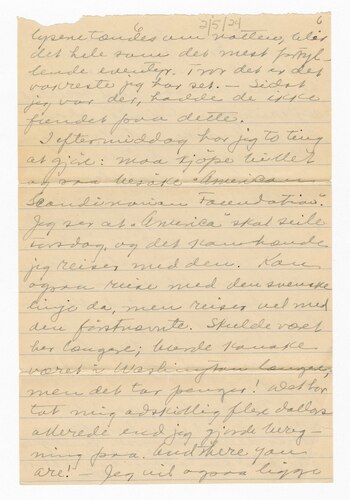 6 2/5/24 6
lysene tændes om natten, blir
det hele som det mest fortryl-
lende eventyr. Tror det er det
vakreste jeg har set. — Sidst
jeg var der, hadde de ikke
fiendet paa dette.
I eftermiddag har jeg to ting
at gjøre: maa kjøpe billet
og saa besøke "American
Scandinavian Foundation".
Jeg ser at "America" skal seile
torsdag, og det kanhende
jeg reiser med den. Kan
ogsaa reise med den svenske
linje da, men reiser vel med
den førstnævnte. Skulde været
her længere; burde kanske
været i Washington længere,
men det tar penger! Det har
tat mig adskillig flere dollars
allerede end jeg gjorde bereg-
ning paa. And there you
are! — Jeg vil ogsaa ligge